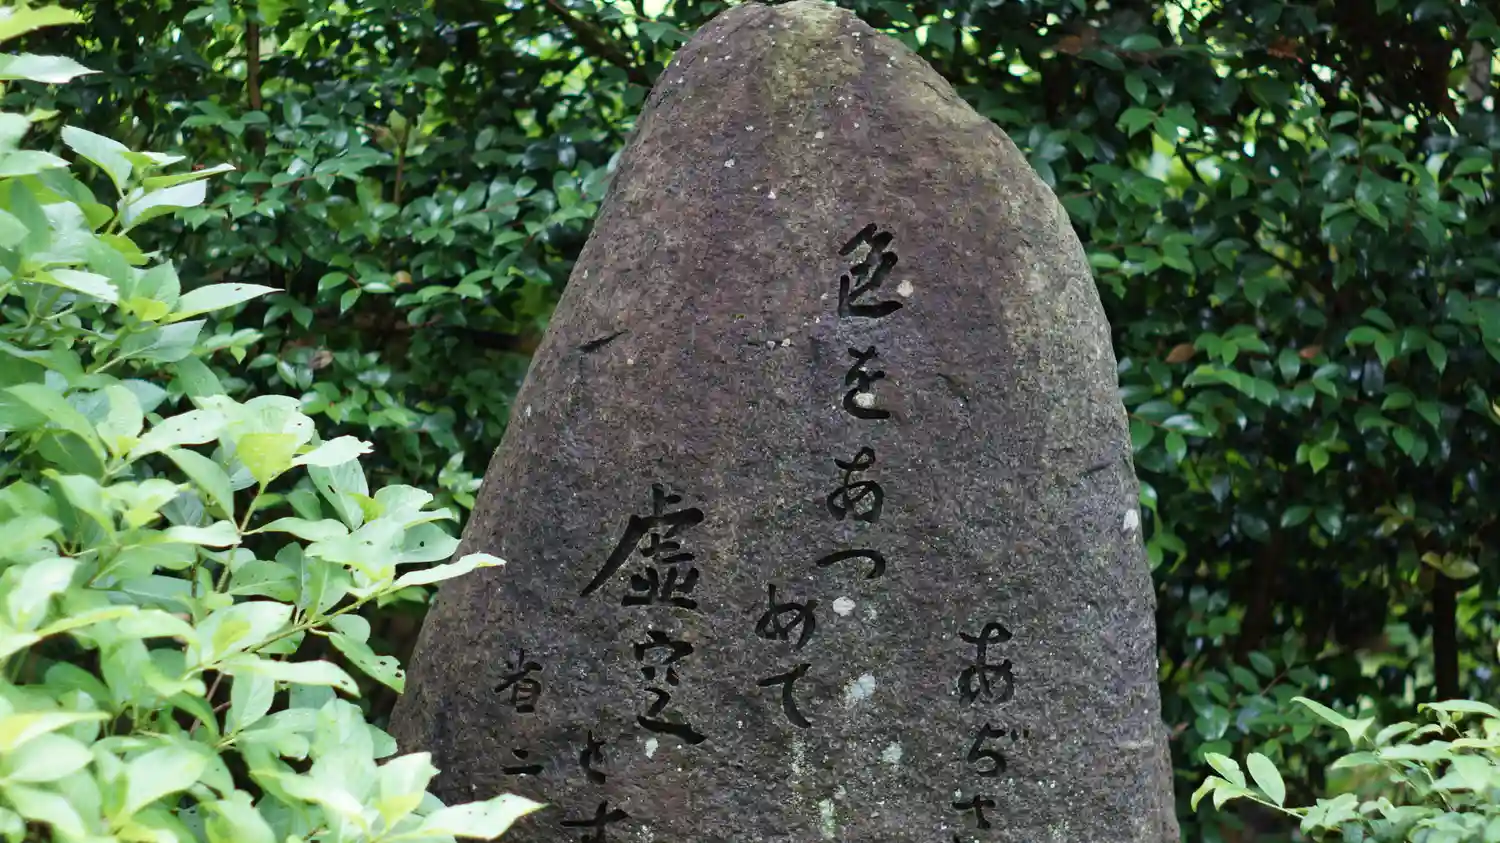 あぢさ
色を
あつ
めて
虚空
とす
省二